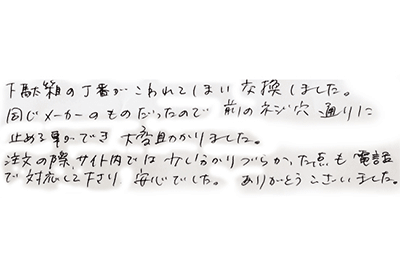 下駄箱の丁番がこわれてしまい交換しました。
同じメーカーのものだったので 前のネジ穴 通りに
止める事ができ 大変助かりました。
注文の際、サイト内では少し分かりづらかった点も電話
で対応して下さり 安心でした。 ありがとうございました。